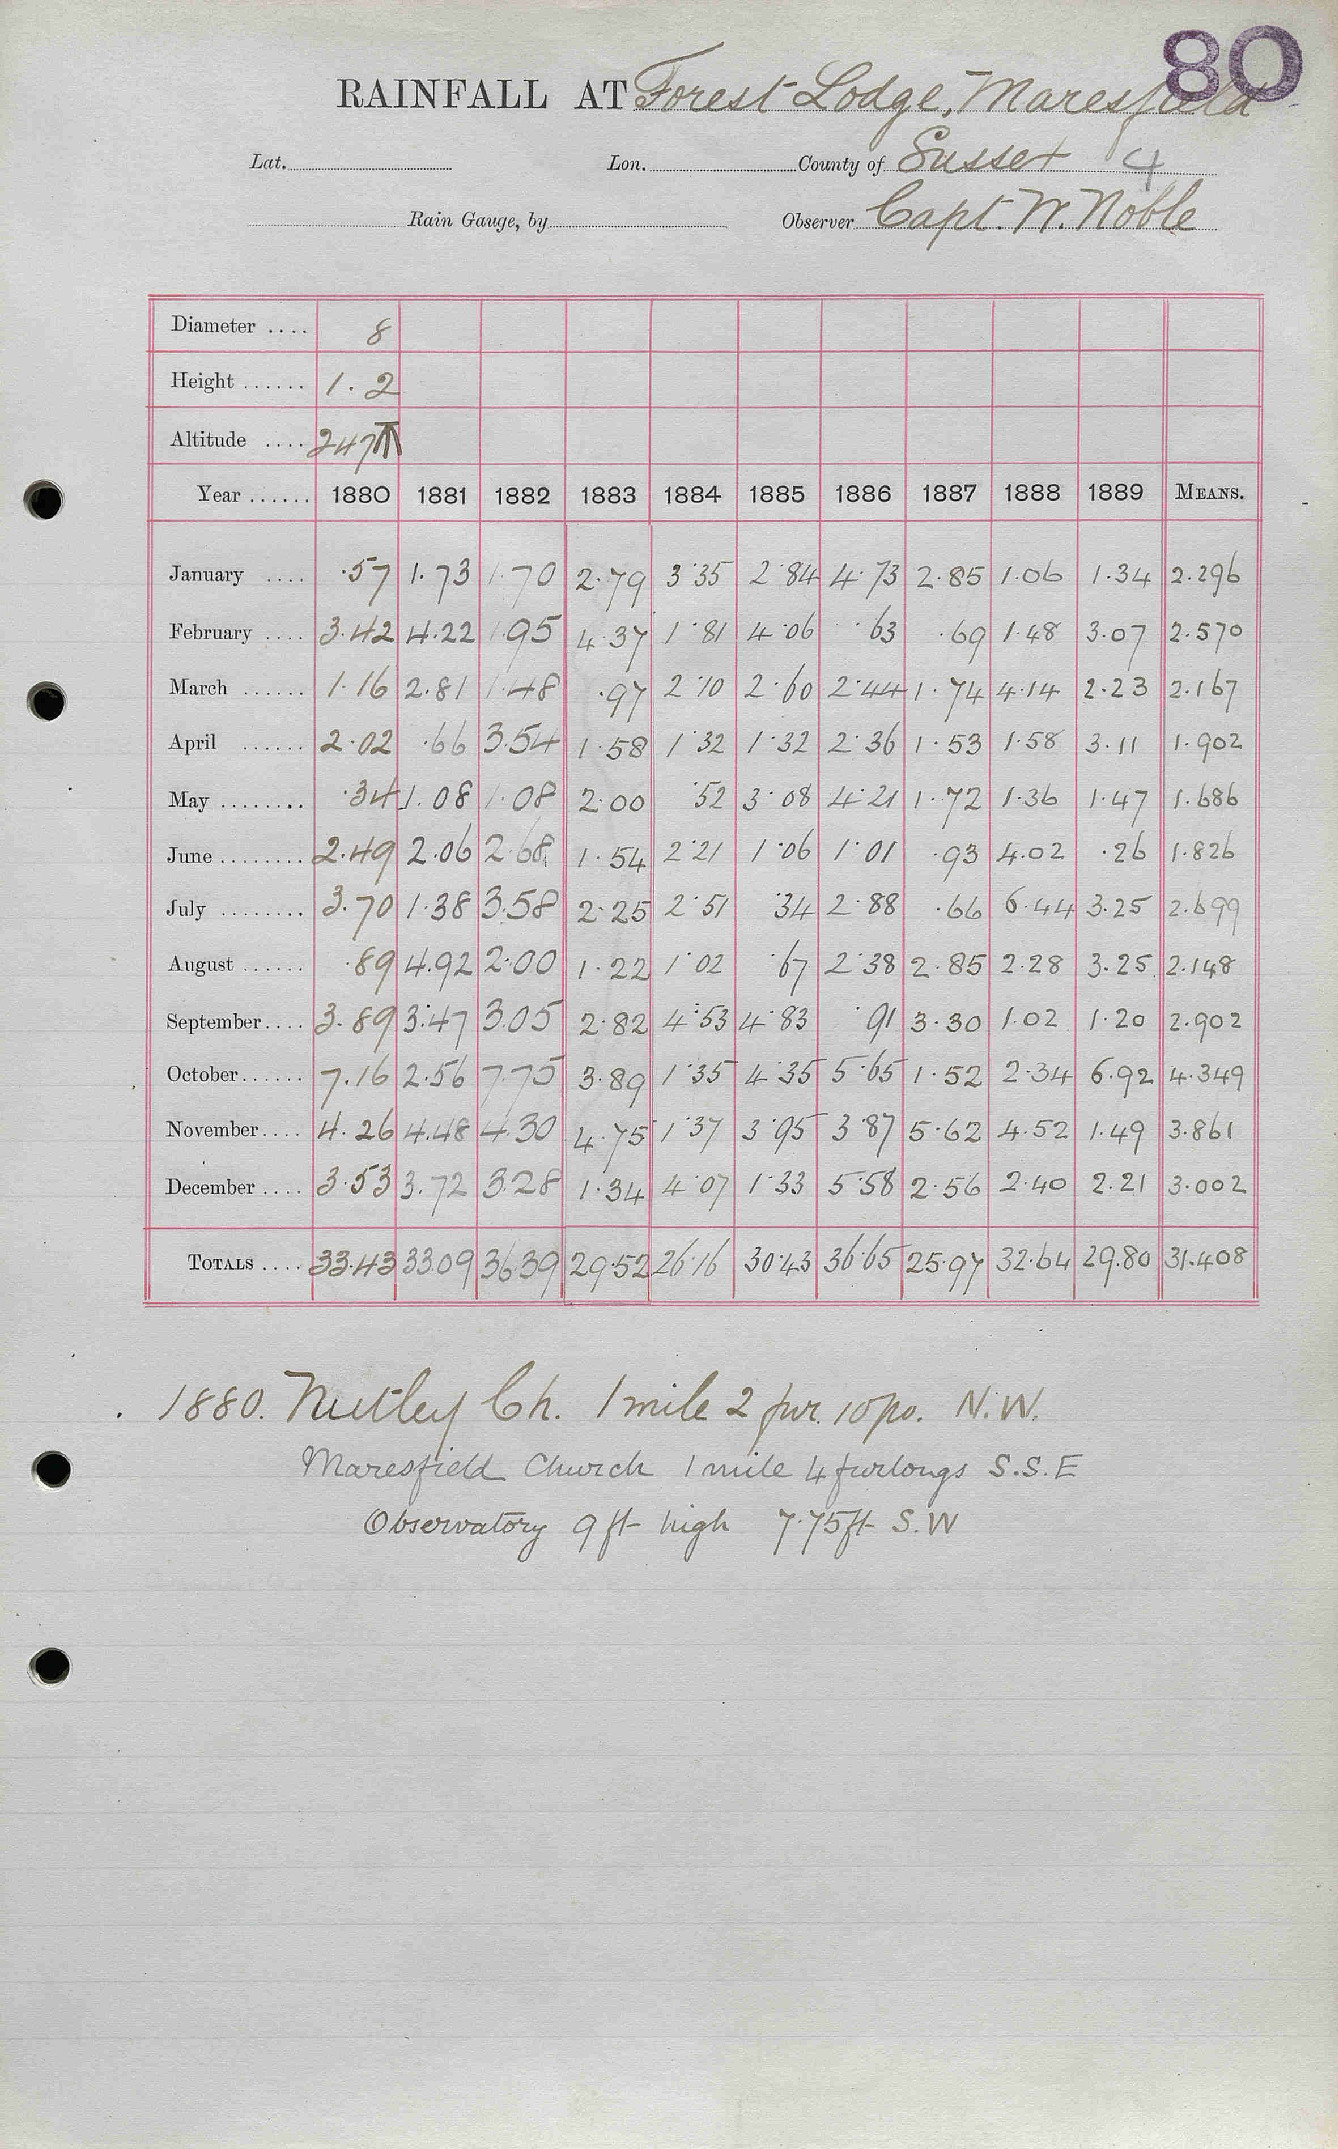 80
RAINFALL AT Forest Lodge, Maresfield
Lat. Lon. County of Sussex 4
Rain Gauge, by Observer Capt. W. Noble
Diameter .... 8
Height ...... 1.2
Altitude .... 247
Year ...... 1880 1881 1882 1883 1884 1885 1886 1887 1888 1889 MEANS.
January .... .57 1.73 1.70 2.79 3.35 2.84 4.73 2.85 1.06 1.34 2.296
February .... 3.42 4.22 1.95 4.37 1.81 4.06 .63 .69 1.48 3.07 2.570
March ...... 1.16 2.81 1.48 .97 2.10 2.60 2.44 1.74 4.14 2.23 2.167
April ...... 2.02 .66 3.54 1.58 1.32 1.32 2.36 1.53 1.58 3.11 1.902
May ........ .34 1.08 1.08 2.00 .52 3.08 4.21 1.72 1.36 1.47 1.686
June ........ 2.49 2.06 2.68 1.54 2.21 1.06 1.01 .93 4.02 .26 1.826
July ........ 3.70 1.38 3.58 2.25 2.51 .34 2.88 .66 6.44 3.25 2.699
August ...... .89 4.92 2.00 1.22 1.02 .67 2.38 2.85 2.28 3.25 2.148
September .... 3.89 3.47 3.05 2.82 4.53 4.83 .91 3.30 1.02 1.20 2.902
October ...... 7.16 2.56 7.75 3.89 1.35 4.35 5.65 1.52 2.34 6.92 4.349
November .... 4.26 4.48 4.30 4.75 1.37 3.95 3.87 5.62 4.52 1.49 3.861
December .... 3.53 3.72 3.28 1.34 4.07 1.33 5.58 2.56 2.40 2.21 3.002
TOTALS .... 33.43 33.09 36.39 29.52 26.16 30.43 36.65 25.97 32.64 29.80 31.408
1880. Nutley Ch. 1 mile 2 fur. 10 po. N.W.
Maresfield Church 1 mile 4 furlongs S.S.E
Observatory 9 ft high 7.75 ft S.W